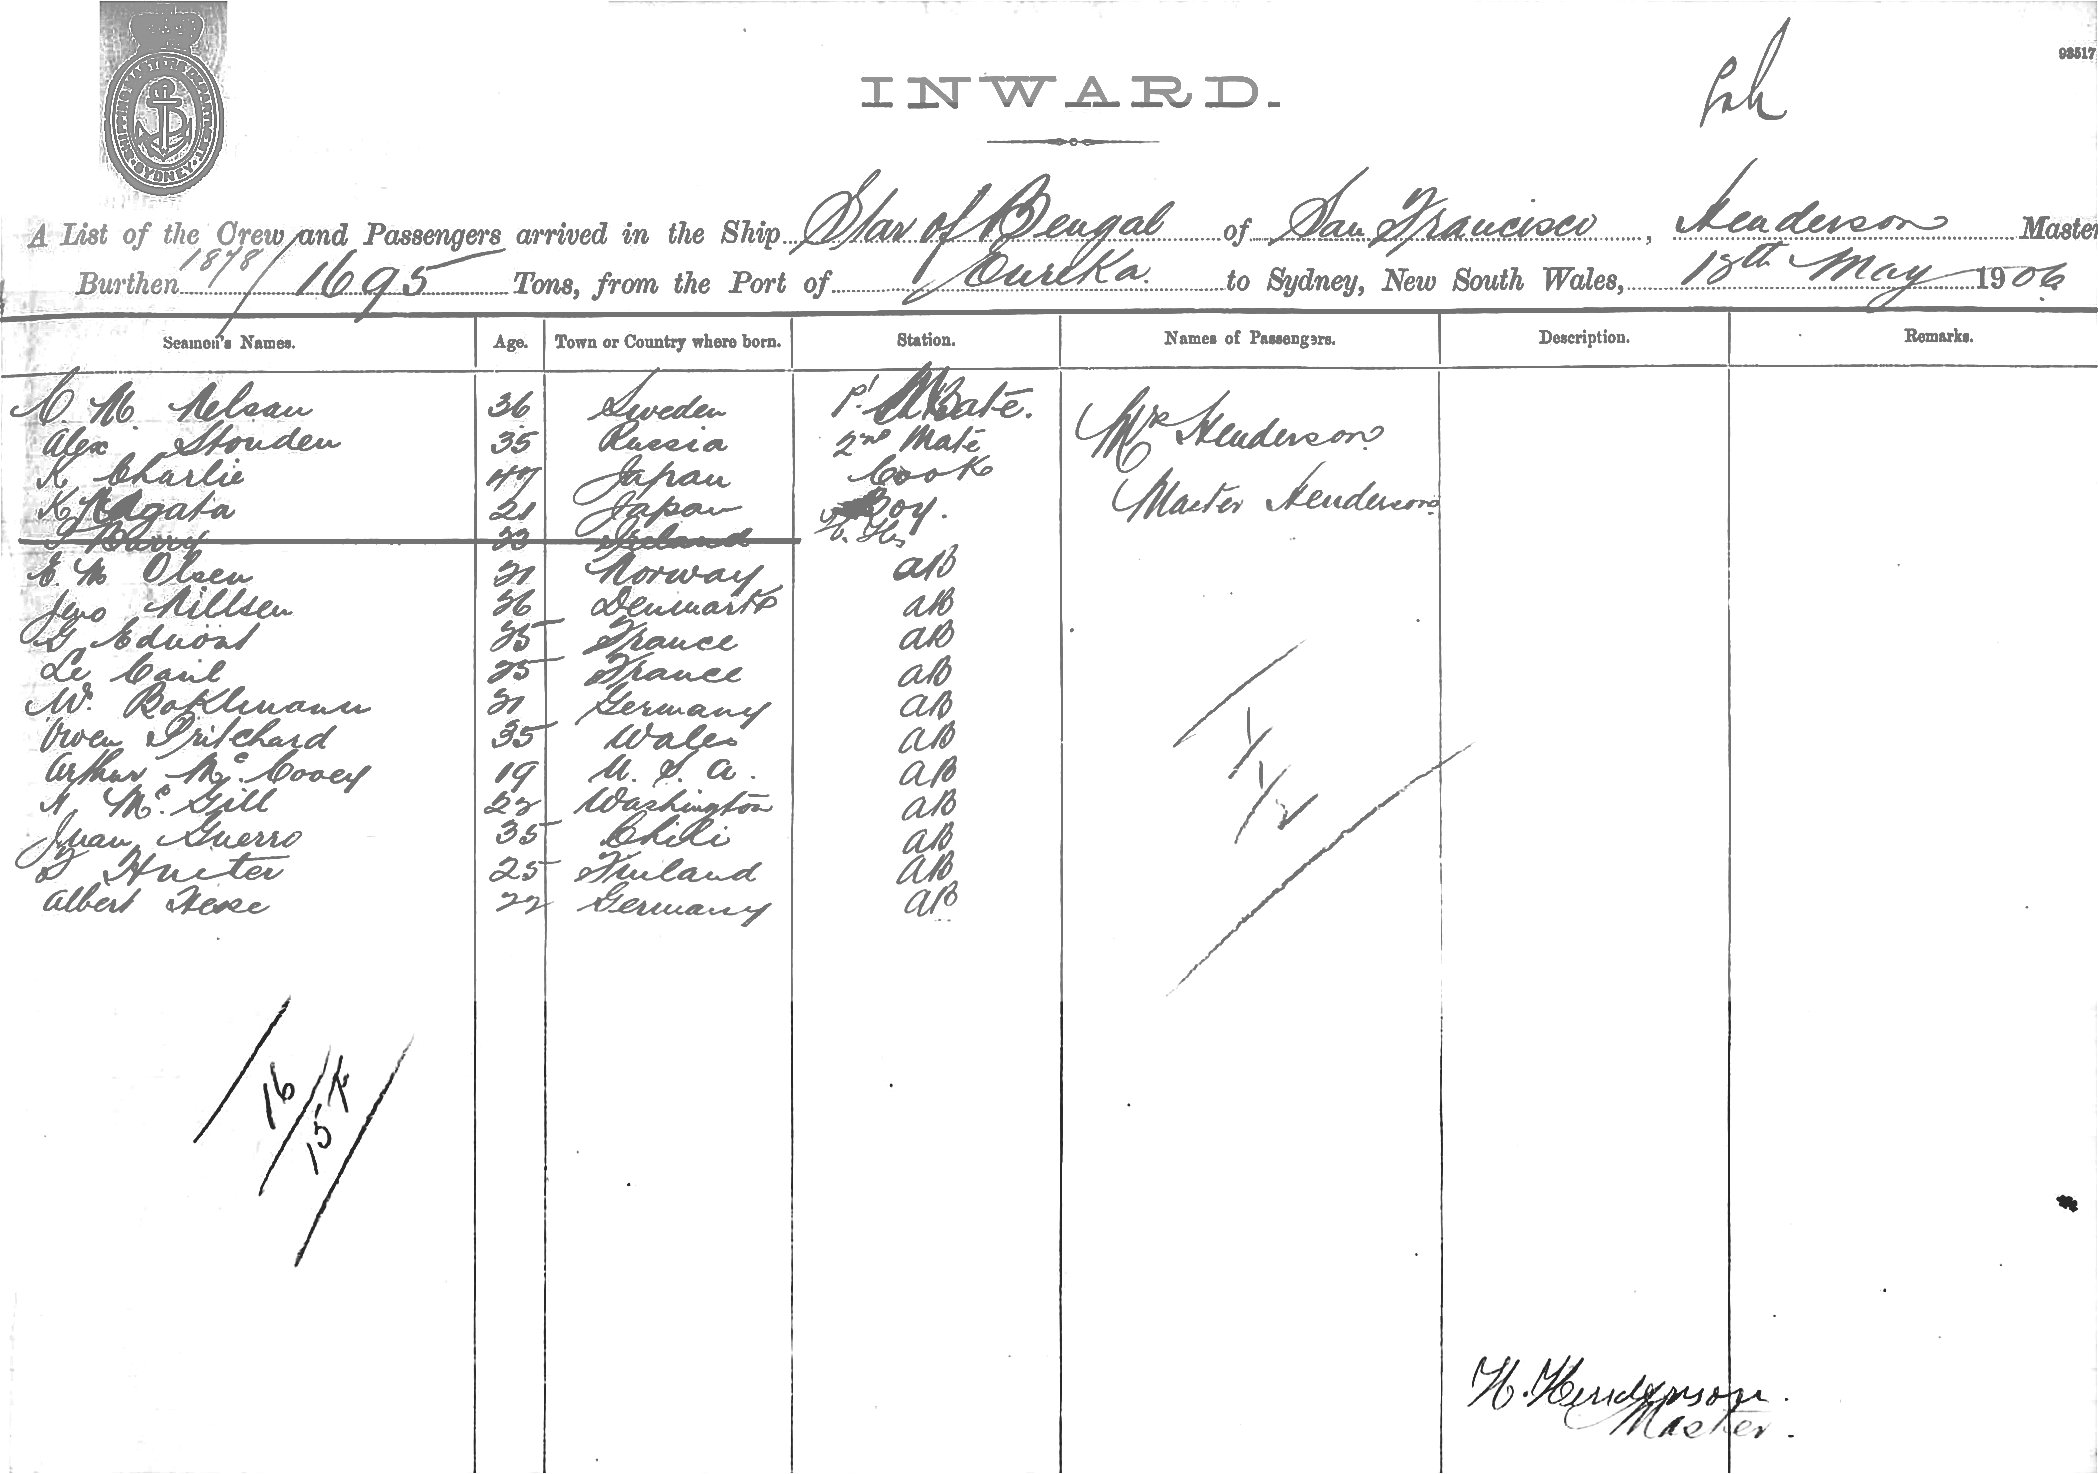 93517
INWARD.
SHIPPING MASTERS DEPARTMENT SYDNEY
A List of the Crew and Passengers arrived in the Ship Star of Bengal of San Francisco, Henderson Master
Burthen 1878/1695 Tons, from the Port of Eureka. to Sydney, New South Wales, 18th May 1906
Seamen's Names. Age. Town or Country where born. Station. Names of Passengers. Description. Remarks.
C. M. Nelsan 36 Sweden Mate. Mrs Henderson
Alex Stouden 35 Russia 2nd Mate
K Charlie 47 Japan Cook
K Nagata 21 Japan Boy. Master Henderson
Barry 23 Ireland
E. M Olsen 21 Norway AB
Jens Nillsen 26 Denmark AB
G Eduoat 25 France AB
Le Cail 25 France AB
W. Boklmann 21 Germany AB
Owen Pritchard 35 Wales AB
Arthur McCovey 19 U.S.A. AB
McGill 22 Washington AB
Juan Guerro 35 Chili AB
Hueter 25 Finland AB
Albert Hesse 22 Germany AB
1/1/2
16
15
H. Henderson.
Master.